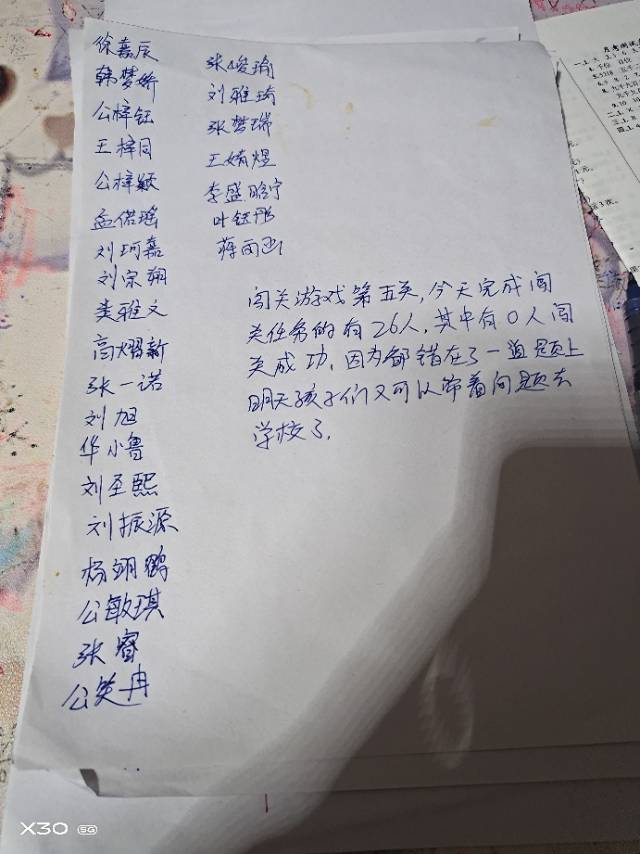 徐嘉辰
韩梦娇
公梓钰
王梓同
公梓颖
孟偌瑶
刘珂嘉
刘宗翔
娄雅文
高熠新
张一诺
刘旭
华小鲁
刘圣熙
刘振源
杨翊鹤
公敏琪
张睿
公笑冉
张俊瑜
刘雅琦
张梦瑞
王婧煜
李盛晗宁
叶钰彤
蒋雨函
闯关游戏第五关,今天完成闯
关任务的有26人,其中有0人闯
关成功,因为都错在了一道题上
明天孩子们又可以带着问题去
学校了.
X30 5G